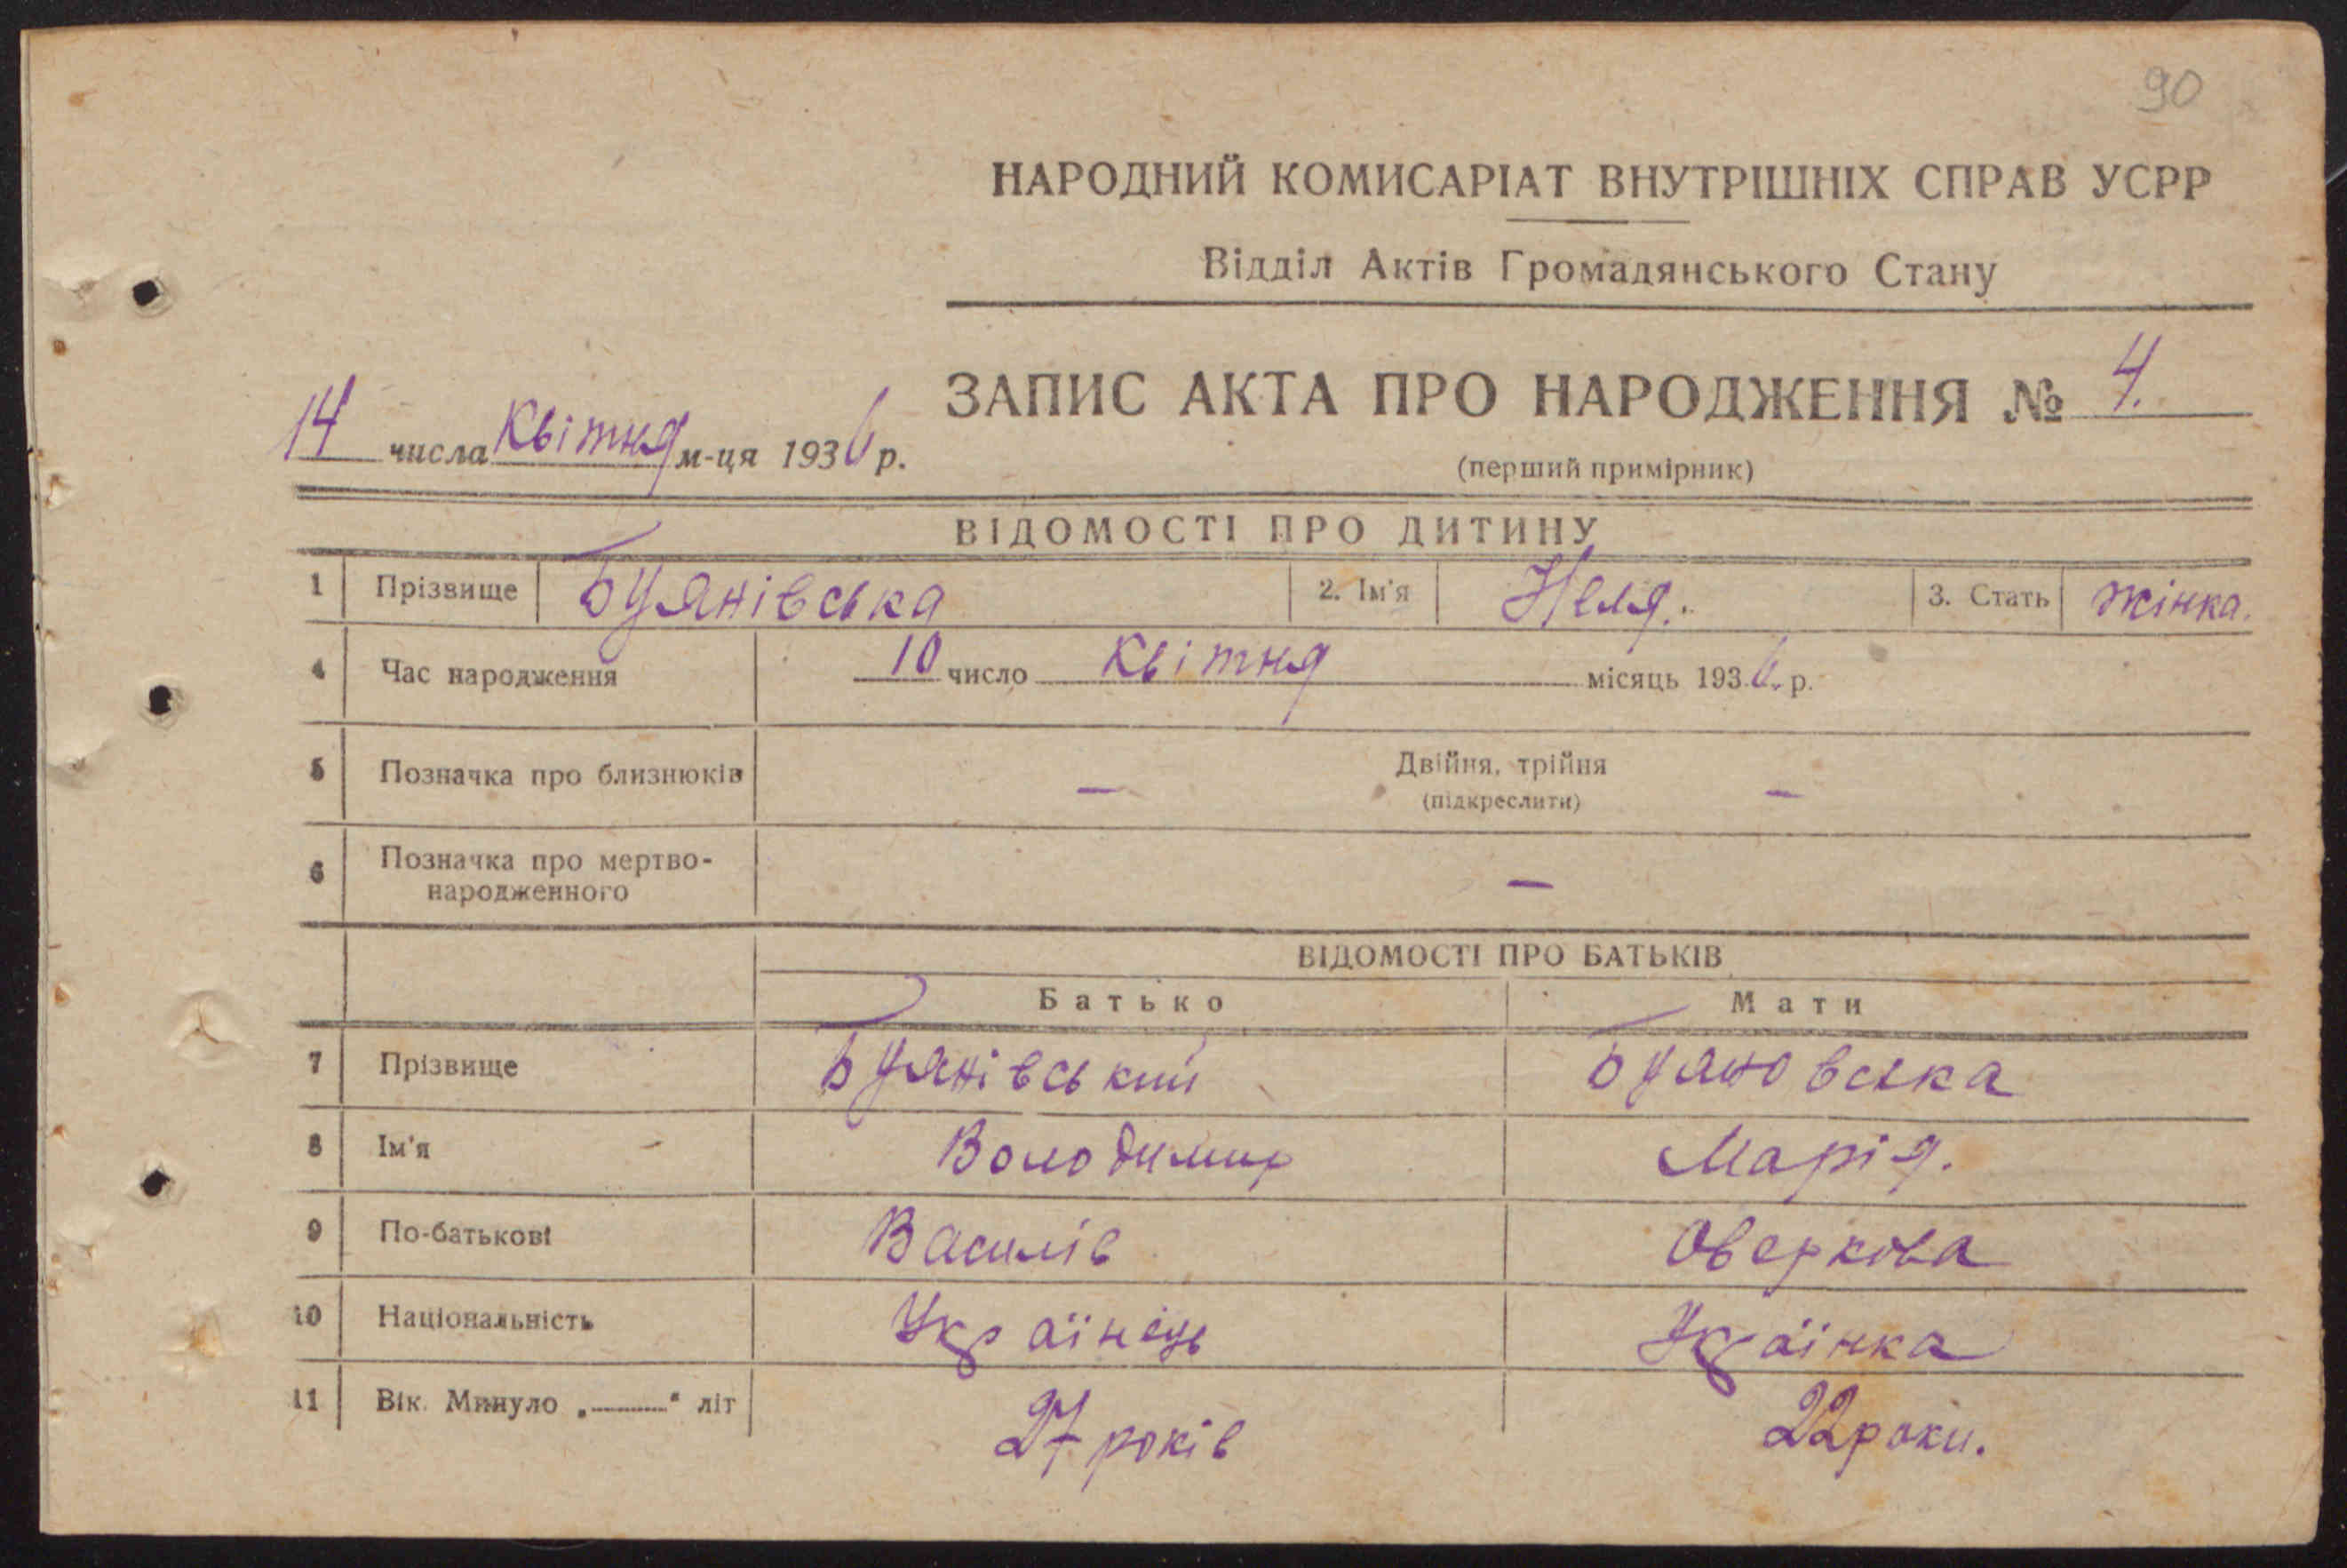 90
НАРОДНИЙ КОМИСАРІАТ ВНУТРІШНІХ СПРАВ УСРР
Відділ Актів Громадянського Стану
ЗАПИС АКТА ПРО НАРОДЖЕННЯ № 4.
14 числа Квітня м-ця 1936 р.
(перший примірник)
ВІДОМОСТІ ПРО ДИТИНУ
1 Прізвище Буянівська 2. Ім'я Неля. 3. Стать жінка.
4 Час народження 10 число Квітня місяць 1936. р.
5 Позначка про близнюків — Двійня, трійня —
(підкреслити)
6 Позначка про мертво-
народженного —
ВІДОМОСТІ ПРО БАТЬКІВ
Батько Мати
7 Прізвище Буянівський Буяновська
8 Ім'я Володимир Марія.
9 По-батькові Василів Оверкова
10 Національність Українець Українка
11 Вік. Минуло „——" літ 27 років 22 роки.